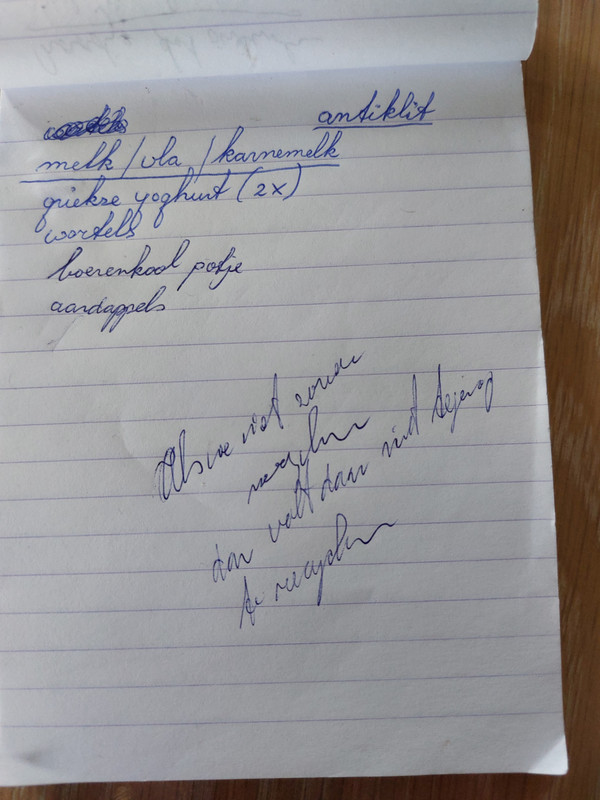 antiklit
melk / vla / karnemelk
griekse yoghurt (2x)
wortels
boerenkool potje
aardappels
Als we niet zouden
recyclen
dan valt daar niet tegenop
te recyclen